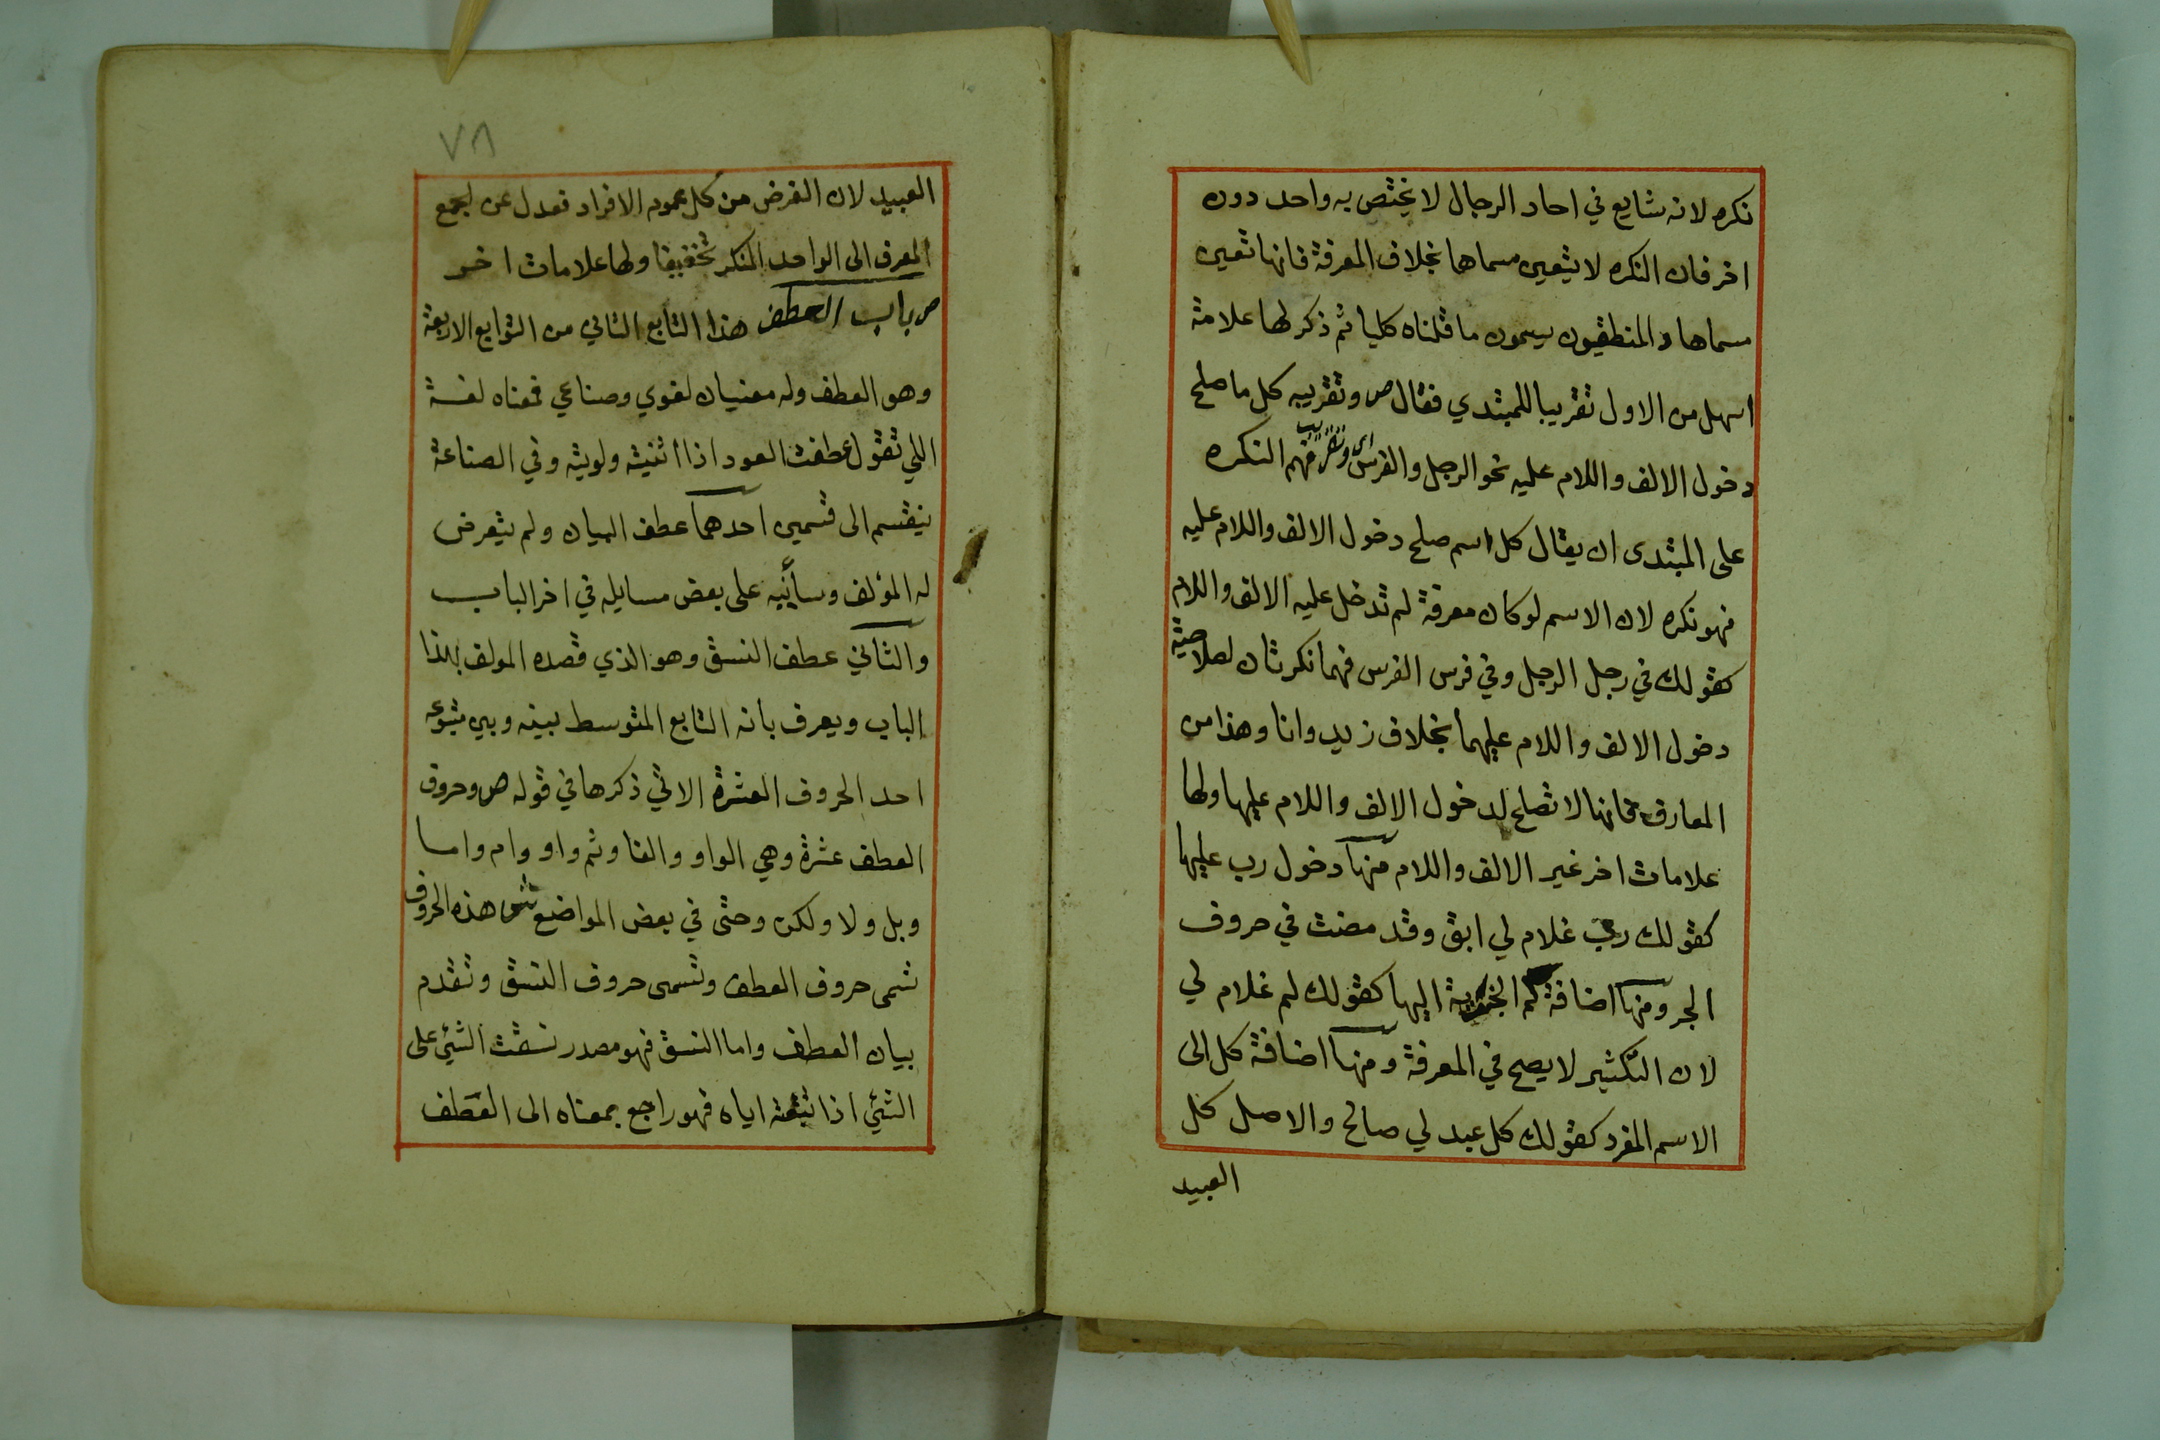 نكره لانه شايع في احاد الرجال لا يختص به واحد دون
اخر فان النكره لا يتعين مسماها بخلاف المعرفة فانها تعين
مسماها والمنطقيون يسمون ما قلناه كليا ثم ذكر لها علامة
اسهل من الاول تقريبا للمبتدي فقال ص وتقريبه كل ما صلح
دخول الالف واللام عليه نحو الرجل والفرس اي وتقريب فهم النكره
على المبتدى ان يقال كل اسم صلح دخول الالف واللام عليه
فهو نكره لان الاسم لو كان معرفة لم تدخل عليه الالف واللام
كقولك في رجل الرجل وفي فرس الفرس فهما نكرتان لصلاحيته
دخول الالف واللام عليهما بخلاف زيد وانا وهذا من
المعارف فانها لا تصلح لدخول الالف واللام عليها ولها
علامات اخر غير الالف واللام منها دخول رب عليها
كقولك رب غلام لي ابق وقد مضت في حروف
الجر ومنها اضافة كم الخبرية اليها كقولك لم غلام لي
لان التكثير لا يصح في المعرفة ومنها اضافة كل الى
الاسم المفرد كقولك كل عبد لي صالح والاصل كل
العبيد
٧٨
العبيد لان الغرض من كل عموم الافراد فعدل عن لجمع
المعرف الى الواحد المنكر تخفيفا ولها علامات اخر
ص باب العطف هذا التابع الثاني من التوابع الاربعة
وهو العطف وله معنيان لغوي وصناعي فمعناه لغة
اللي تقول عطفت العود اذا اثنيته ولويته وفي الصناعة
ينقسم الى قسمين احدهما عطف البيان ولم يتعرض
له المؤلف وسأنبه على بعض مسايله في اخر الباب
والثاني عطف النسق وهو الذي قصده المولف بهذا
الباب ويعرف بانه التابع المتوسط بينه وبين متبوعه
احد الحروف العشرة الاتي ذكرها في قوله ص وحروف
العطف عشرة وهي الواو والفا وثم واو وام واما
وبل ولا ولكن وحتى في بعض المواضع ش هذه الحروف
تسمى حروف العطف وتسمى حروف النسق وتقدم
بيان العطف واما النسق فهو مصدر نسقت الشئي على
الشئي اذا تبعته اياه فهو راجع بمعناه الى العطف